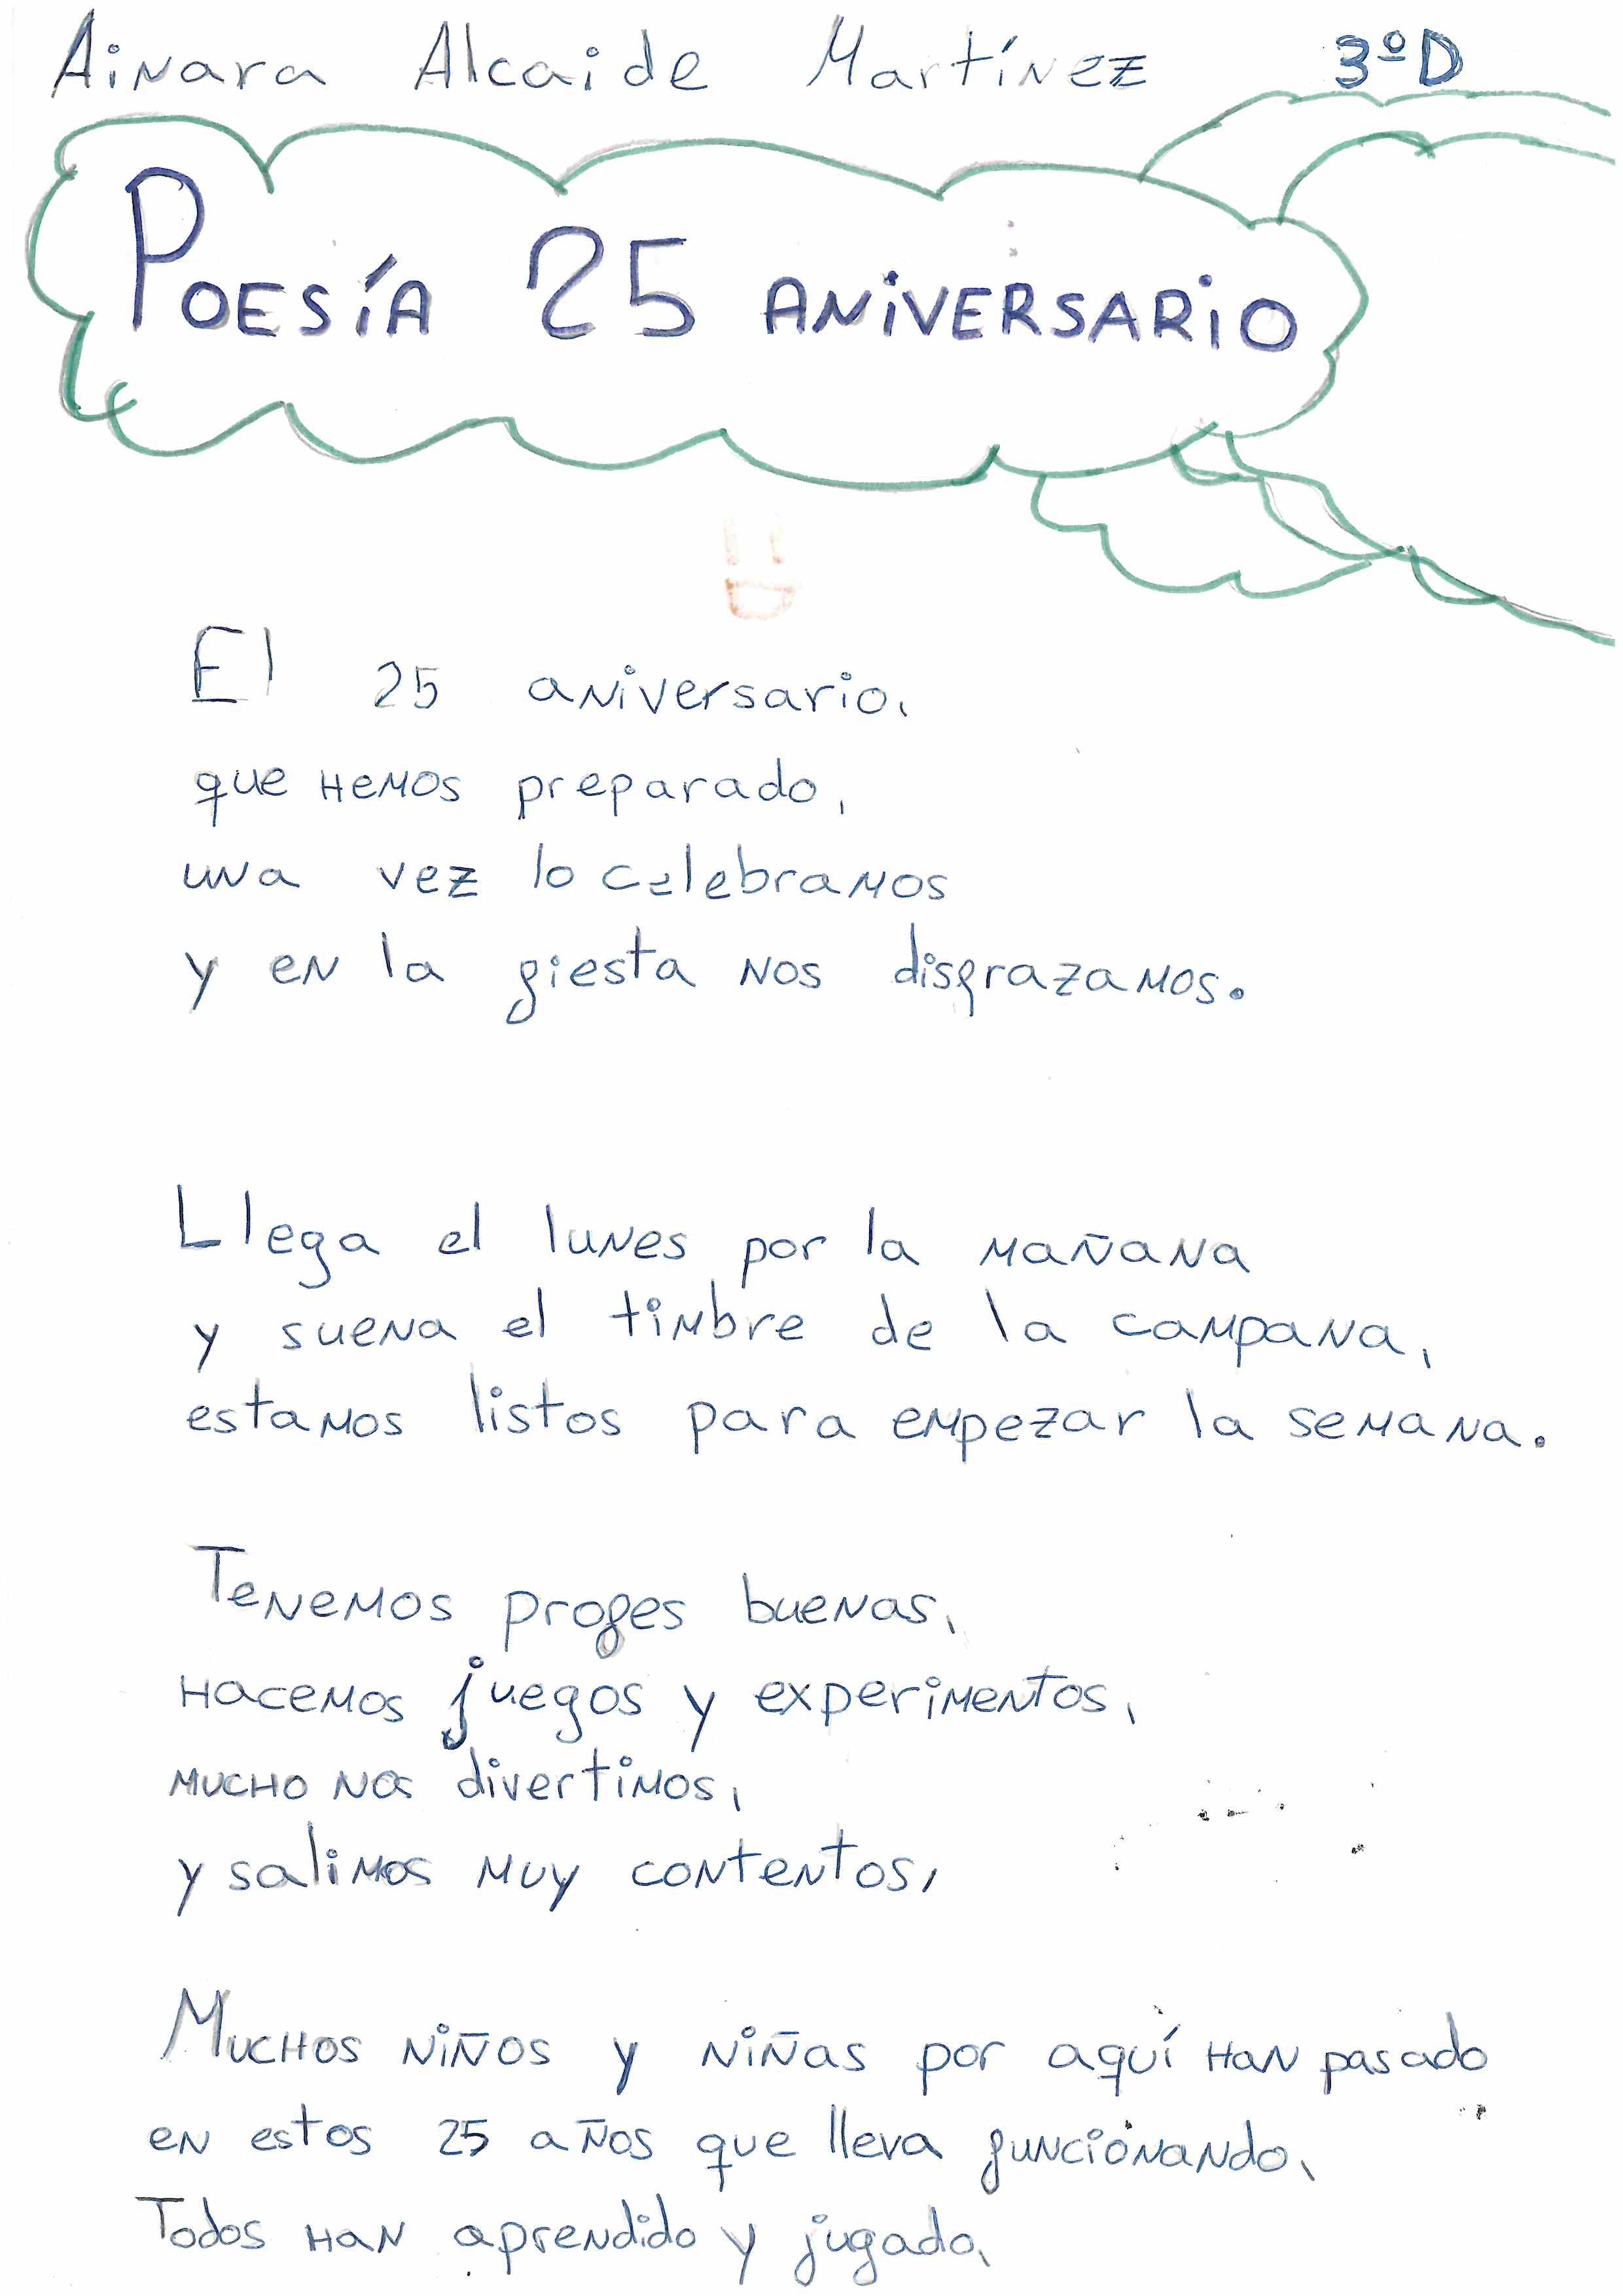 Ainara Alcaide Martínez 3ºD
Poesía 25 aniversario
El 25 aniversario,
que hemos preparado,
una vez lo celebramos
y en la fiesta nos disfrazamos.
Llega el lunes por la mañana
y suena el timbre de la campana,
estamos listos para empezar la semana.
Tenemos profes buenas,
hacemos juegos y experimentos,
mucho nos divertimos,
y salimos muy contentos,
Muchos niños y niñas por aquí han pasado
en estos 25 años que lleva funcionando,
Todos han aprendido y jugado,